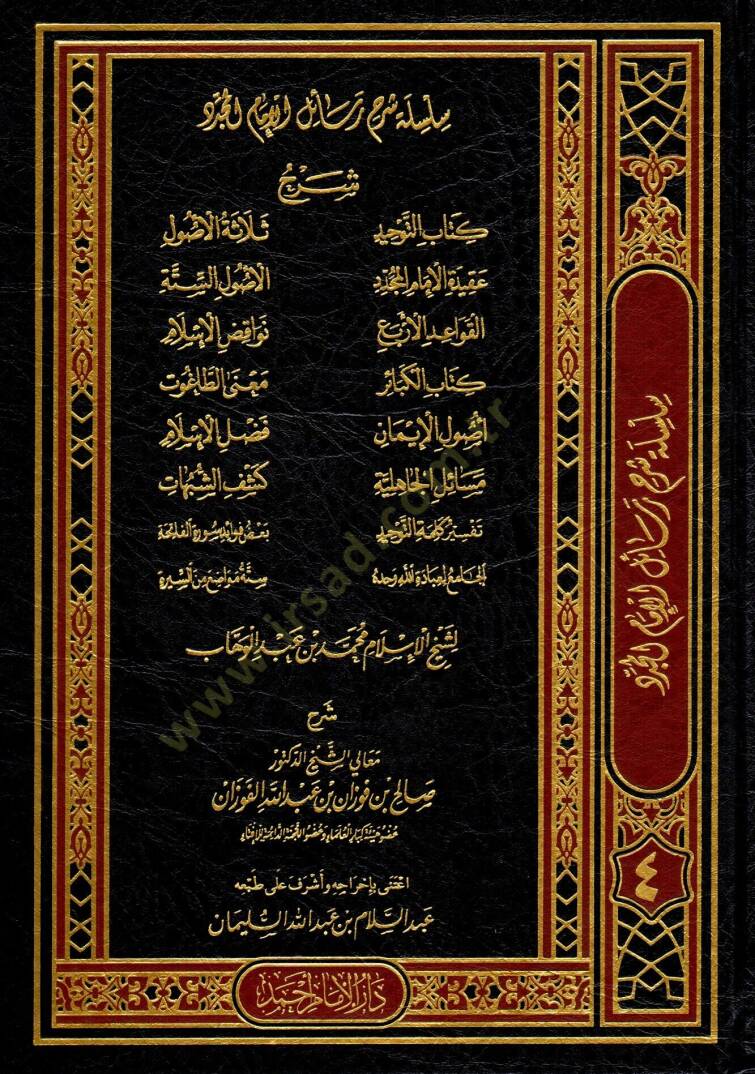 سِلْسِلَة شَرْح رَسَائِل الإِمَام المُجَدِّد
شَرْحُ
كِتَابِ التَّوْحِيدِ ثَلَاثَةُ الأُصُولِ
عَقِيدَةِ الإِمَامِ المُجَدِّدِ الأُصُولِ السِّتَّةِ
القَوَاعِدِ الأَرْبَعِ نَوَاقِضِ الإِسْلَامِ
كِتَابِ الكَبَائِرِ مَعْنَى الطَّاغُوتِ
أُصُولِ الإِيمَانِ فَضْلِ الإِسْلَامِ
مَسَائِلِ الجَاهِلِيَّةِ كَشْفِ الشُّبُهَاتِ
تَفْسِيرُ كَلِمَةِ التَّوْحِيدِ بَعْضُ فَوَائِدِ سُورَةِ الفَاتِحَةِ
الجَامِعُ لِعِبَادَةِ اللهِ وَحْدَهُ سِتَّةُ مَوَاضِعَ مِنَ السِّيرَةِ
لِشَيْخِ الإِسْلَامِ مُحَمَّدِ بْنِ عَبْدِ الوَهَّابِ
شَرْحُ
مَعَالِي الشَّيْخِ الدُّكْتُورِ
صَالِحِ بْنِ فَوْزَانَ بْنِ عَبْدِ اللهِ الفَوْزَانِ
عُضْوِ هَيْئَةِ كِبَارِ العُلَمَاءِ وَعُضْوِ اللَّجْنَةِ الدَّائِمَةِ لِلإِفْتَاءِ
اعْتَنَى بِإِخْرَاجِهِ وَأَشْرَفَ عَلَى طَبْعِهِ
عَبْدُ السَّلَامِ بْنُ عَبْدِ اللهِ السُّلَيْمَانِ
دَارُ الإِمَامِ أَحْمَد
سِلْسِلَة شَرْح رَسَائِل الإِمَام المُجَدِّد
www.irsad.com.tr